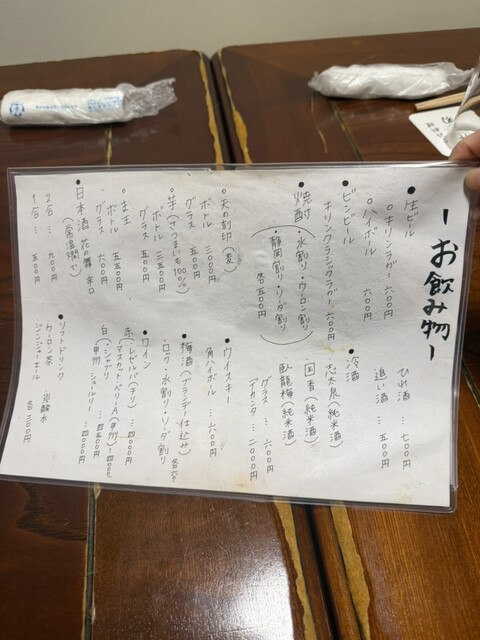 ーお飲み物ー
●生ビール
○キリンラガー 六〇〇円
○ハイボール 六〇〇円
●ビンビール
キリンクラシックラガー 六〇〇円
●焼酎
(・水割り・ウーロン割り
・静岡割り・ソーダ割り)
各五〇〇円
○天の刻印(麦)
ボトル 三〇〇〇円
グラス 五〇〇円
○芋(さつまいも100%)
ボトル 三五〇〇円
グラス 五〇〇円
ボトル 五五〇〇円
グラス 六〇〇円
●日本酒 花の舞 辛口
(常温・燗・冷)
2合… 九〇〇円
1合… 五〇〇円
ひれ酒 … 七〇〇円
追い酒 … 五〇〇円
●冷酒
志太泉(純米酒)
・国香(純米酒)
臥龍梅(純米酒)
グラス … 六〇〇円
デカンタ … 二〇〇〇円
●ウイスキー
角ハイボール … 六〇〇円
梅酒(ブランデー仕込み)
ロック・水割り・ソーダ割り
●ワイン
赤(レゼルバ(チリ) … 四〇〇〇円
マスカット・ベリーA(甲州)
白(・シャブリ
甲州シュールリー
●ソフトドリンク
ウーロン茶 炭酸水
ジンジャーエール 各三〇〇円